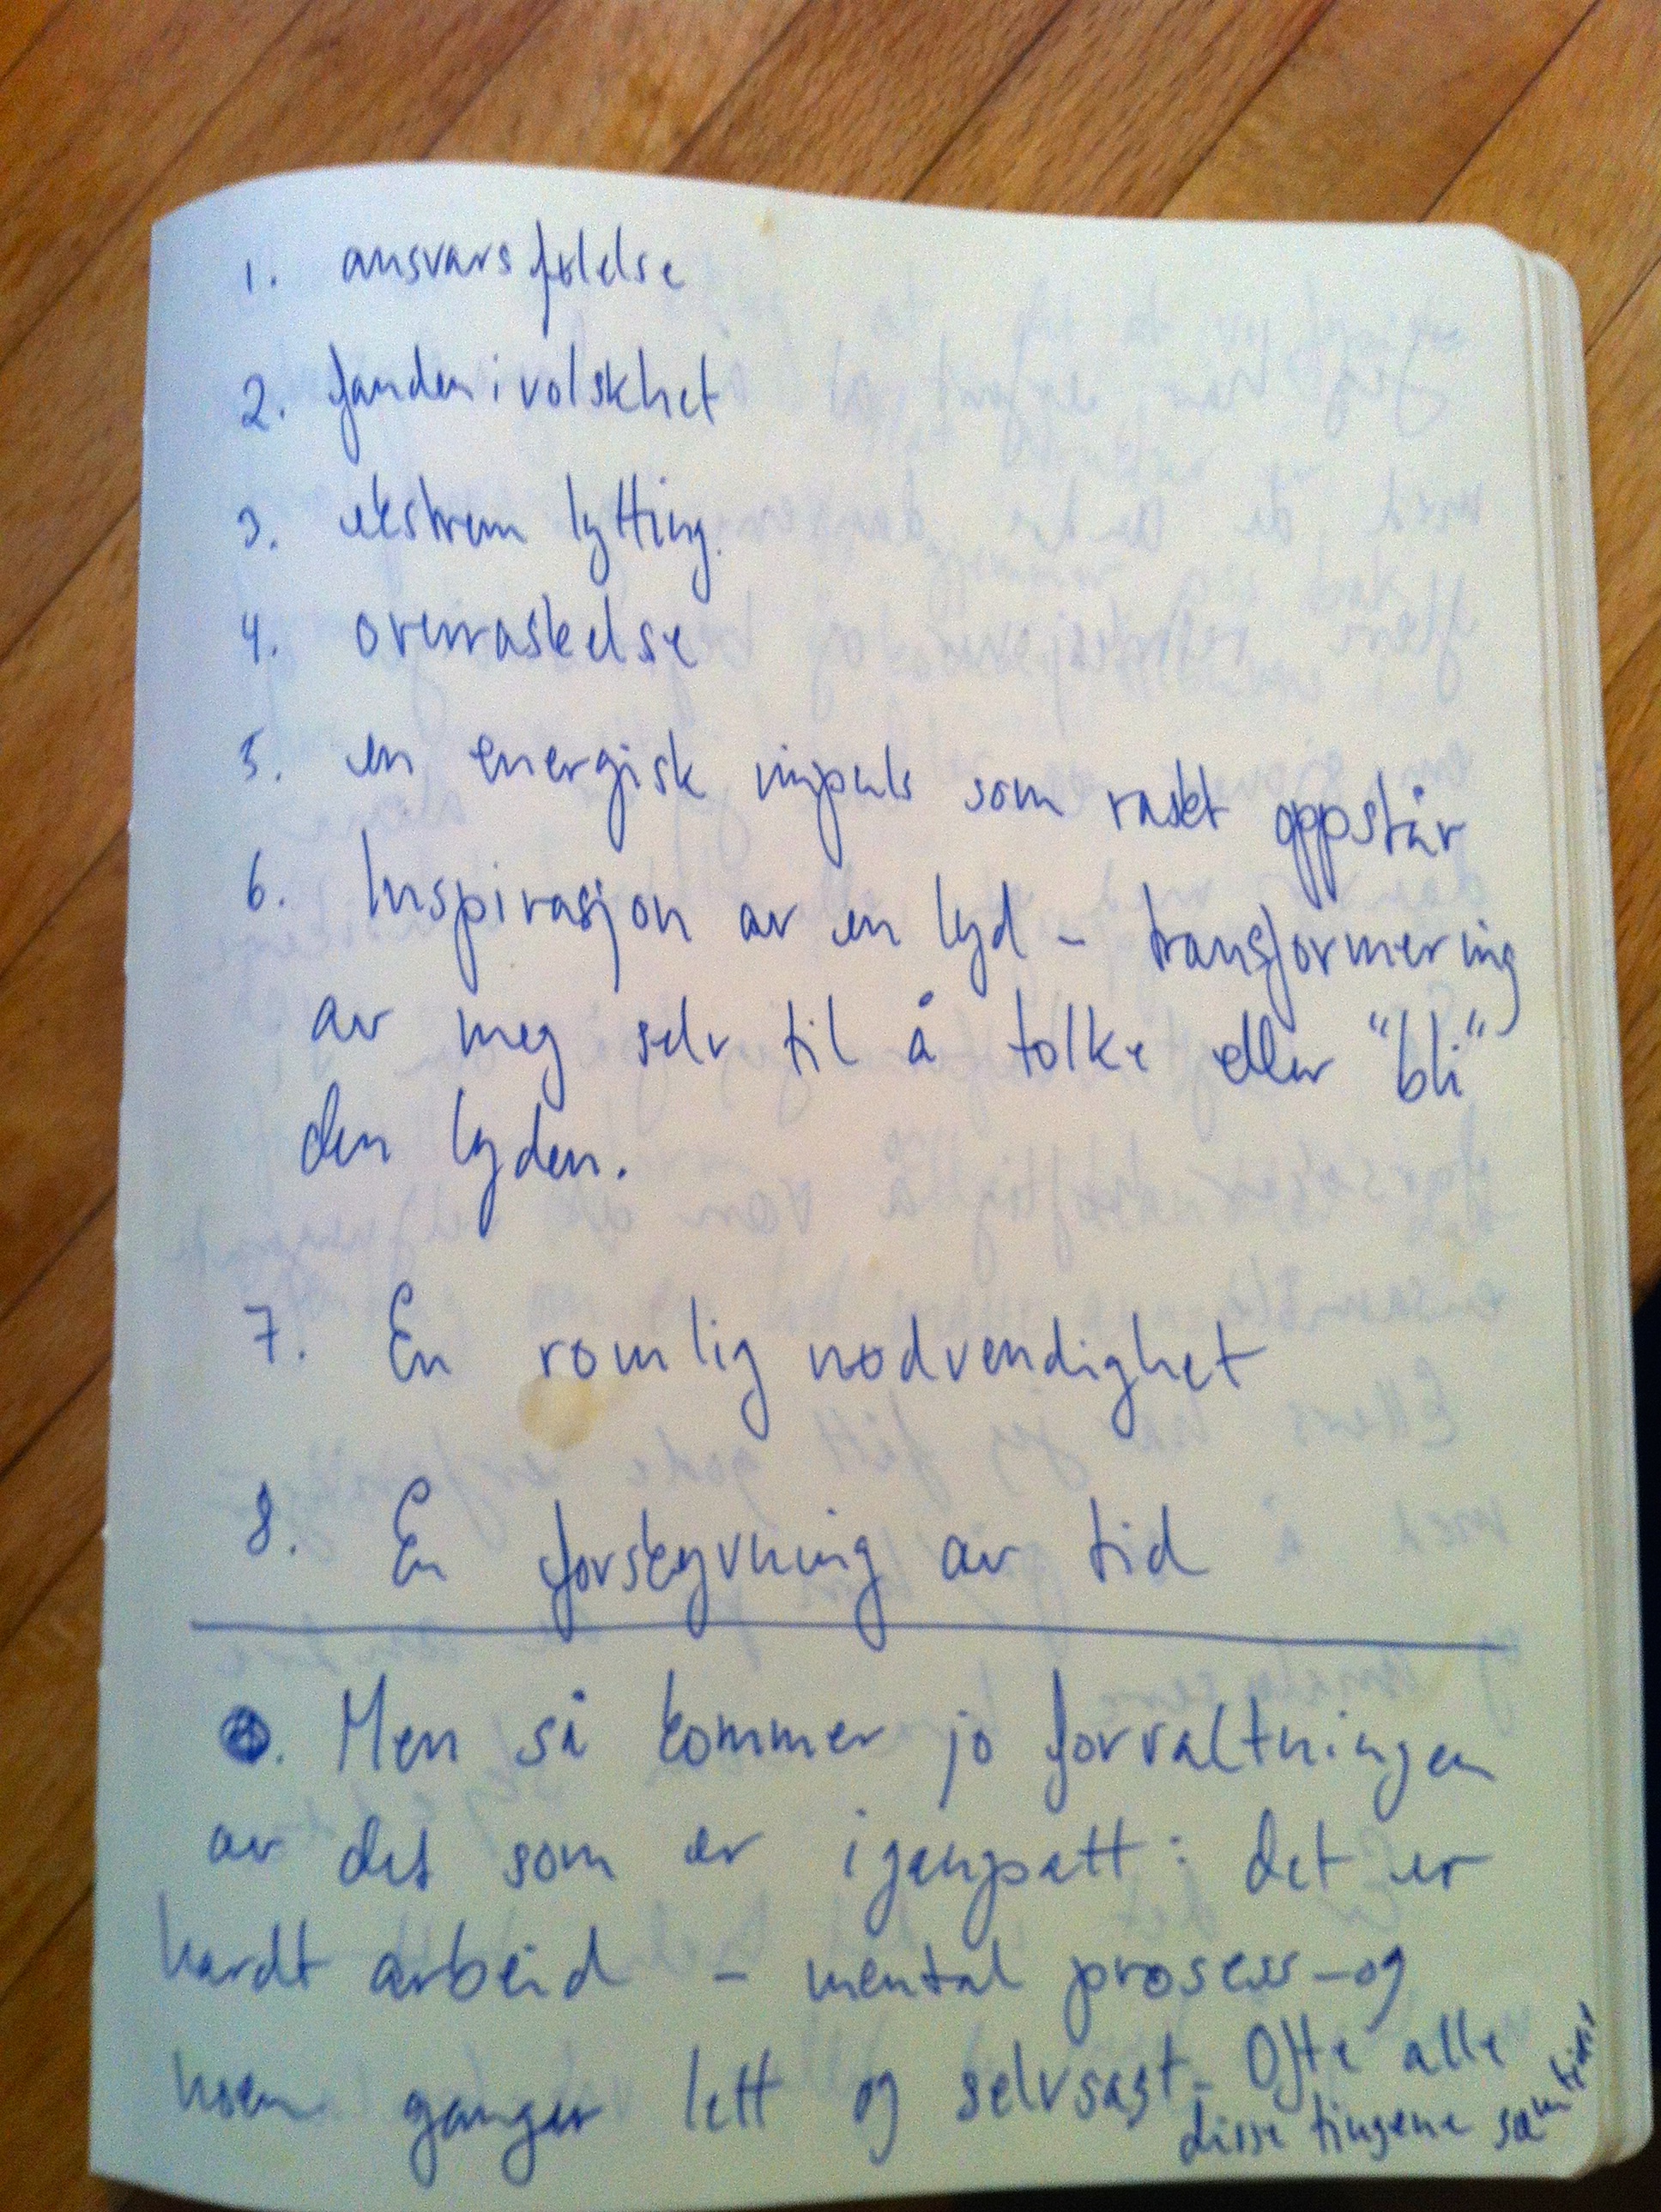 1. ansvarsfølelse
2. fandenivolskhet
3. ekstrem lytting.
4. overraskelse
5. en energisk impuls som raskt oppstår
6. Inspirasjon av en lyd - transformering
av meg selv til å tolke eller "bli"
den lyden.
7. En romlig nødvendighet
8. En forskyvning av tid
Men så kommer jo forvaltningen
av det som er igangsatt: det er
hardt arbeid - mental prosess - og
noen ganger lett og selvsagt. Ofte alle
disse tingene samtidig